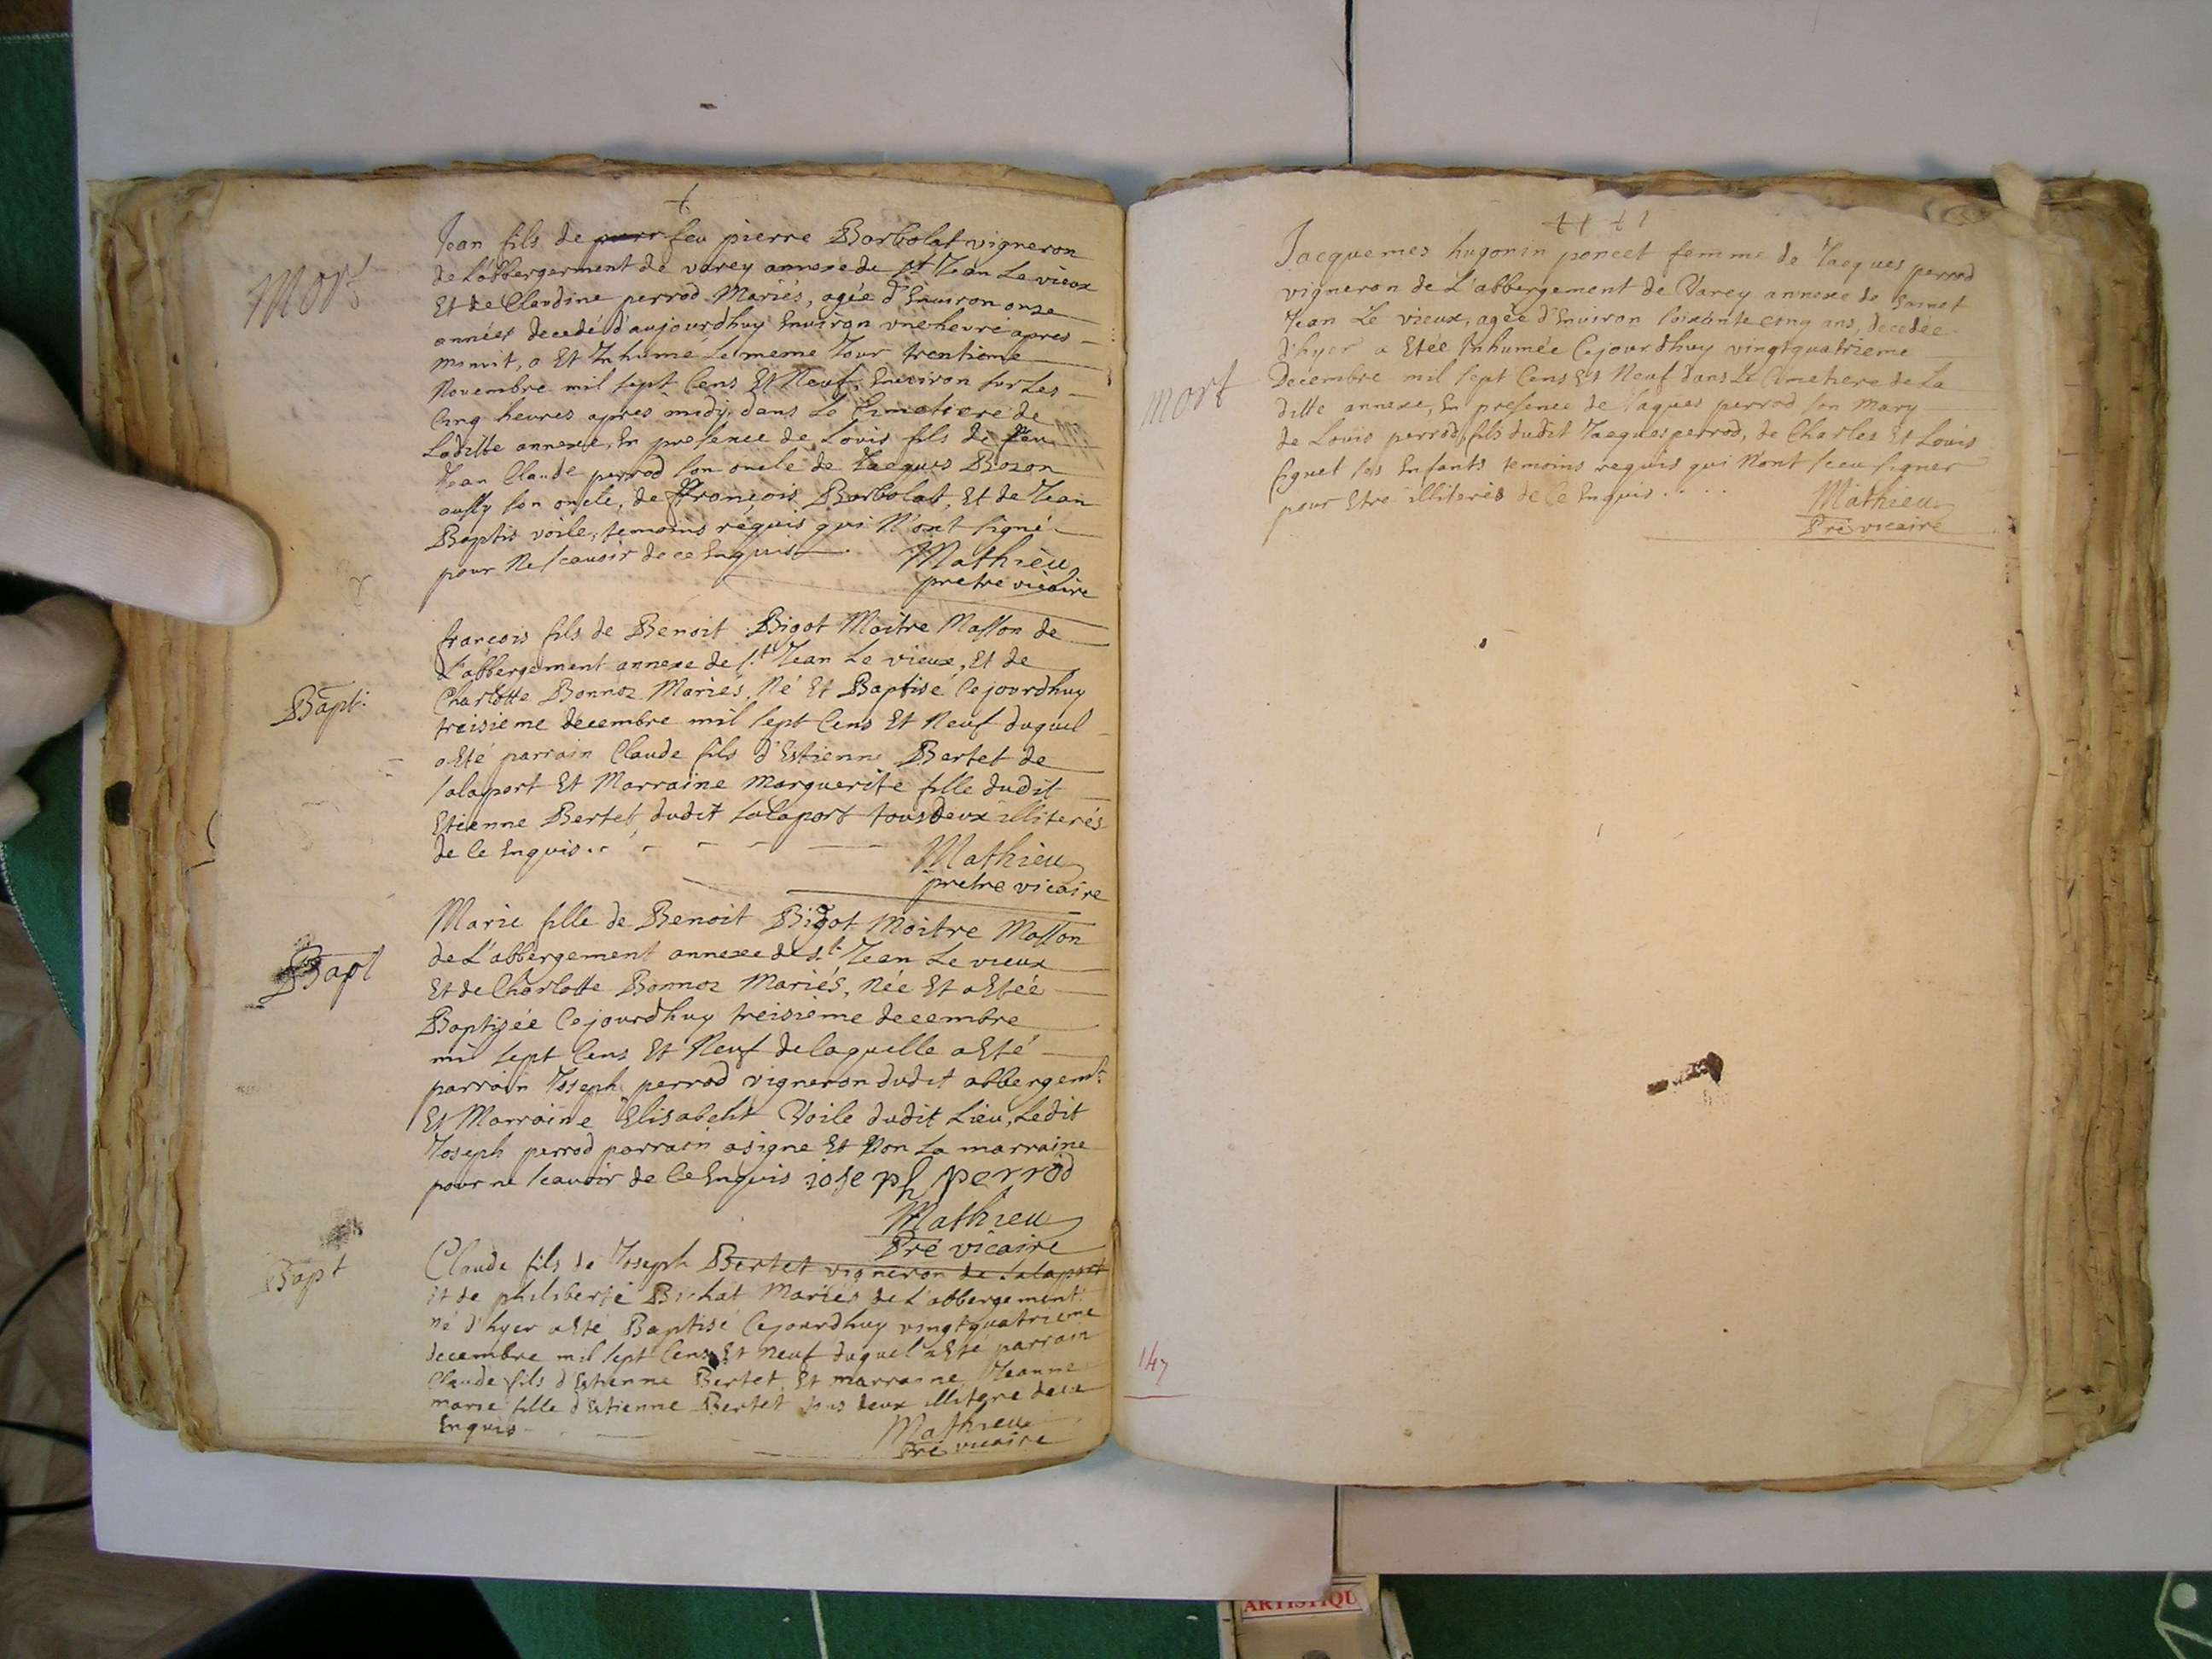 Mort
Jean fils de feu pierre Barbolat vigneron
de L'abbergement de varey annexe de st Jean Le vieux
Et de Claudine perrod Mariés, agée d'Environ onze
années decedé d'aujourdhuy Environ une heure apres
minuit, a Et Inhumé Le meme Jour trentieme
Novembre mil sept Cens Et Neuf, Environ sur Les
Cinq heures apres midy, dans Le Cimetiere de
Laditte annexe, En presence de Louis fils de feu
Jean Claude perrod son oncle de Jacques Bozon
aussy son oncle, de François Barbolat, Et de Jean
Baptis voile, temoins requis qui N'ont signé
pour Ne scavoir de ce Enquis
Mathieu
pretre vicaire
Bapt.
françois fils de Benoit Bigot Maitre Masson de
L'abbergement annexe de s.t Jean Le vieux, Et de
Charlotte Bonnoz Mariés, Né Et Baptisé Cejourdhuy
treisieme decembre mil sept Cens Et Neuf duquel
a Eté parrain Claude fils d'Estienne Bertet de
salaport Et Marraine Marguerite fille dudit
Etienne Bertet, dudit salaport tous Deux illiterés
de Ce Enquis
Mathieu
pretre vicaire
Bapt
Marie fille de Benoit Bigot Maitre Masson
de L'abbergement annexe de st Jean Le vieux
Et de Charlotte Bonnoz Mariés, Née Et a Etée
Baptisée Cejourdhuy treisieme decembre
mil sept Cens Et Neuf de laquelle a Eté
parrain Joseph perrod vigneron dudit abbergemt.
Et Marraine Elisabeht Voile dudit Lieu, Ledit
Joseph perrod parrain a signe Et Non La marraine
pour ne scavoir de Ce Enquis joseph perrod
Mathieu
Pre vicaire
Bapt
Claude fils de Joseph Bertet vigneron de salaport
Et de philiberte Bichat Mariés de L'abbergement
né d'hyer a Eté Baptisé Cejourdhuy vingtquatrieme
decembre mil sept Cens Et neuf duquel a Eté parrain
Claude fils d'Estienne Bertet, Et marraine Jeanne
marie fille d'Estienne Bertet tous deux illitere de ce
Enquis
Mathieu
Pre vicaire
mort
Jacquemes hugonin poncet femme de Jacques perrod
vigneron de L'abbergement de Varey annexe de Sainct
Jean Le vieux, agée d'Environ soixante Cinq ans, decedée
d'hyer a Etée Inhumée Cejourdhuy vingtquatrieme
Decembre mil sept Cens Et Neuf dans Le Cimetiere de La
ditte annexe, En presence de Jaques perrod son mary
de Louis perrod fils dudit Jacques perrod, de Charles Et Louis
Cignet ses Enfants temoins requis qui N'ont sceu signer
pour Etre illiterés de Ce Enquis
Mathieu
Pre vicaire
147
ARTISTIQU